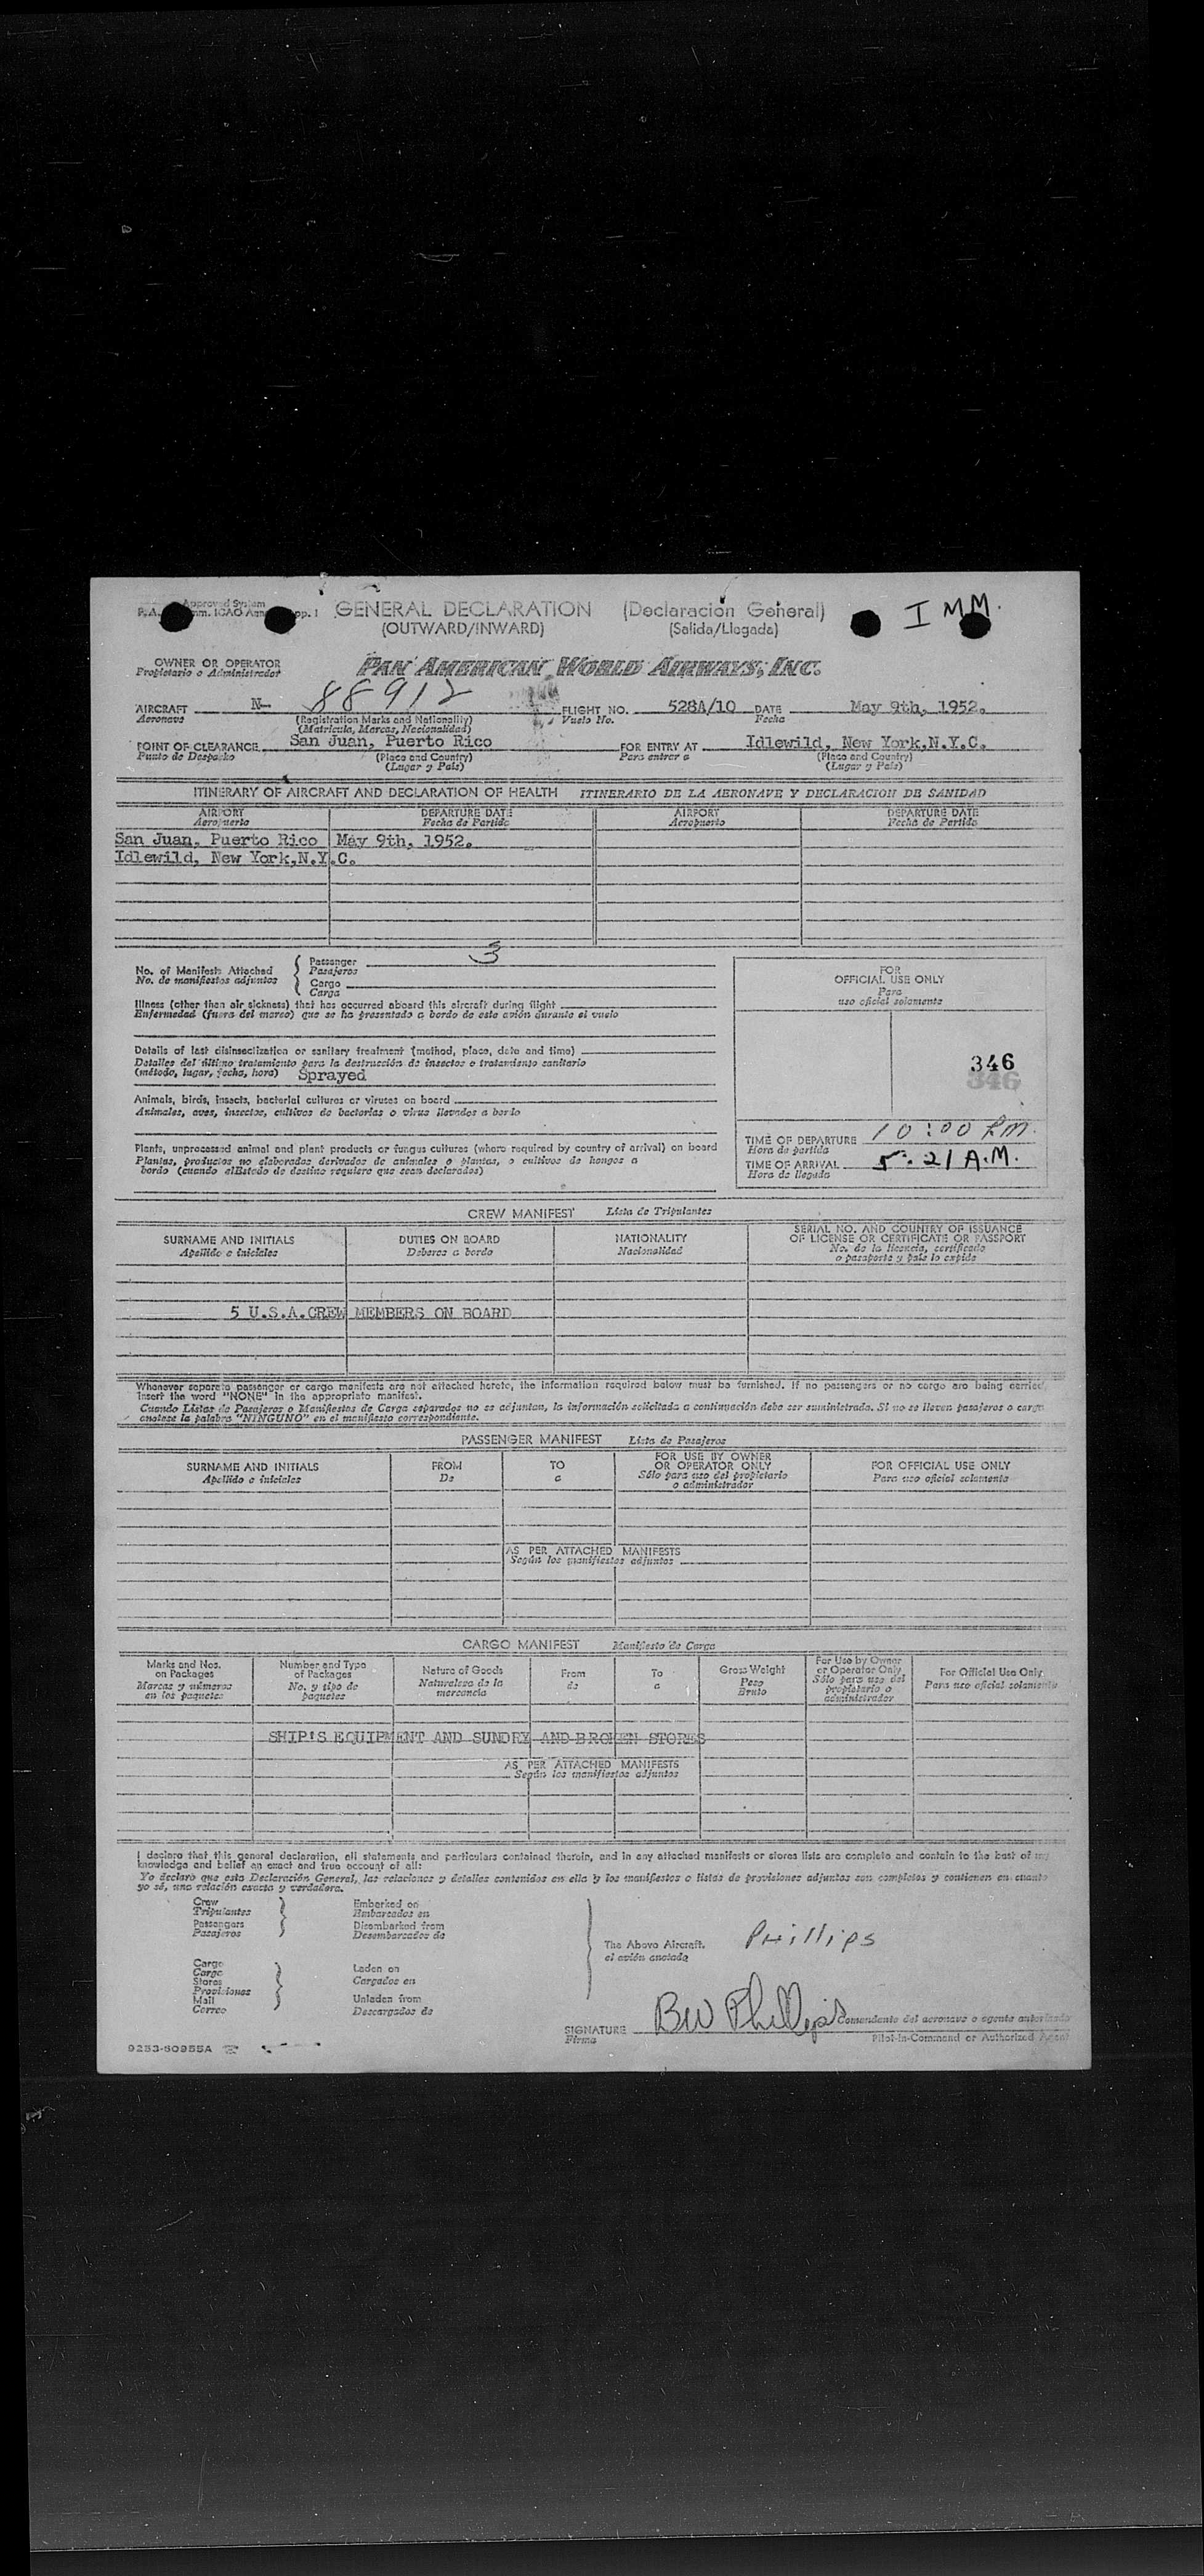 Approved System
GENERAL DECLARATION (Declaración General) I MM.
(OUTWARD/INWARD) (Salida/Llegada)
OWNER OR OPERATOR
Propietario o Administrador
PAN AMERICAN WORLD AIRWAYS, INC.
AIRCRAFT N- 88912 FLIGHT NO. 528A/10 DATE May 9th, 1952.
Aeronave (Registration Marks and Nationality) Vuelo No. Fecha
(Matrícula, Marcas, Nacionalidad)
POINT OF CLEARANCE San Juan, Puerto Rico FOR ENTRY AT Idlewild, New York,N.Y.C.
Punto de Despacho (Place and Country) Para entrar a (Place and Country)
(Lugar y País) (Lugar y País)
ITINERARY OF AIRCRAFT AND DECLARATION OF HEALTH ITINERARIO DE LA AERONAVE Y DECLARACION DE SANIDAD
AIRPORT DEPARTURE DATE AIRPORT DEPARTURE DATE
Aeropuerto Fecha de Partida Aeropuerto Fecha de Partida
San Juan, Puerto Rico May 9th, 1952.
Idlewild, New York,N.Y.C.
No. of Manifests Attached Passenger 3
No. de manifiestos adjuntos Pasajeros
Cargo
Carga
Illness (other than air sickness) that has occurred aboard this aircraft during flight
Enfermedad (fuera del mareo) que se ha presentado a bordo de este avión durante el vuelo
Details of last disinsectization or sanitary treatment (method, place, date and time)
Detalles del último tratamiento para la destrucción de insectos o tratamiento sanitario
(método, lugar, fecha, hora) Sprayed
Animals, birds, insects, bacterial cultures or viruses on board
Animales, aves, insectos, cultivos de bacterias o virus llevados a bordo
Plants, unprocessed animal and plant products or fungus cultures (where required by country of arrival) on board
Plantas, productos no elaborados derivados de animales o plantas, o cultivos de hongos a
bordo (cuando el Estado de destino requiere que sean declarados)
FOR
OFFICIAL USE ONLY
Para
uso oficial solamente
346
346
TIME OF DEPARTURE 10:00 P.M.
Hora de partida
TIME OF ARRIVAL 5:21 A.M.
Hora de llegada
CREW MANIFEST Lista de Tripulantes
SURNAME AND INITIALS DUTIES ON BOARD NATIONALITY SERIAL NO. AND COUNTRY OF ISSUANCE
OF LICENSE OR CERTIFICATE OR PASSPORT
Apellido e iniciales Deberes a bordo Nacionalidad No. de la licencia, certificado
o pasaporte y país lo expide
5 U.S.A.CREW MEMBERS ON BOARD
Whenever separate passenger or cargo manifests are not attached hereto, the information required below must be furnished. If no passengers or no cargo are being carried,
insert the word "NONE" in the appropriate manifest.
Cuando Listas de Pasajeros o Manifiestos de Carga separados no se adjuntan, la información solicitada a continuación debe ser suministrada. Si no se lleven pasajeros o carga
anótese la palabra "NINGUNO" en el manifiesto correspondiente.
PASSENGER MANIFEST Lista de Pasajeros
SURNAME AND INITIALS FROM TO FOR USE BY OWNER
OR OPERATOR ONLY FOR OFFICIAL USE ONLY
Apellido e iniciales De a Sólo para uso del propietario
o administrador Para uso oficial solamente
AS PER ATTACHED MANIFESTS
Según los manifiestos adjuntos
CARGO MANIFEST Manifiesto de Carga
Marks and Nos.
on Packages Number and Type
of Packages Nature of Goods From To Gross Weight For Use by Owner
or Operator Only For Official Use Only
Marcas y números
en los paquetes No. y tipo de
paquetes Naturaleza de la
mercancía de a Peso
Bruto Sólo para uso del
propietario o
administrador Para uso oficial solamente
SHIP'S EQUIPMENT AND SUNDRY AND BROKEN STORES
AS PER ATTACHED MANIFESTS
Según los manifiestos adjuntos
I declare that this general declaration, all statements and particulars contained therein, and in any attached manifests or stores lists are complete and contain to the best of my
knowledge and belief an exact and true account of all:
Yo declaro que esta Declaración General, las relaciones y detalles contenidos en ella y los manifiestos o listas de provisiones adjuntos son completos y contienen en cuanto
yo sé, una relación exacta y verdadera.
Crew Embarked on
Tripulantes Embarcados en
Passengers Disembarked from
Pasajeros Desembarcados de
The Above Aircraft.
el avión anotado
Phillips
Cargo Laden on
Carga Cargados en
Stores
Provisiones
Mail Unladen from
Correo Descargados de
SIGNATURE BW Phillips Comandante del aeronave o agente autorizado
Firma Pilot-in-Command or Authorized Agent
9253-50955A